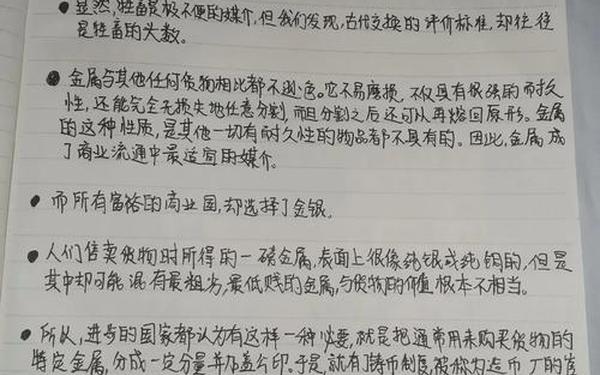 ● 显然,牲畜是极不便的媒介,但我们发现,古代交换的评价标准,却往往
是牲畜的头数。
● 金属与其他任何货物相比都不逊色。它不易磨损,不仅具有很强的耐久
性,还能完全无损失地任意分割,而且分割之后还可以再熔回原形。金属
的这种性质,是其他一切有耐久性的物品都不具有的。因此,金属成
了商业流通中最适宜的媒介。
● 而所有富裕的商业国,却选择了金银。
● 人们售卖货物时所得的一磅金属,表面上很像纯银或纯铜的,但是
其中却可能混有最粗劣,最低贱的金属,与货物的价值根本不相当。
● 所以,进步的国家都认为有这样一种必要,就是把通常用来购买货物的
特定金属,分成一定分量并加盖公印。于是,就有了铸币制度,被称为造币厂的官